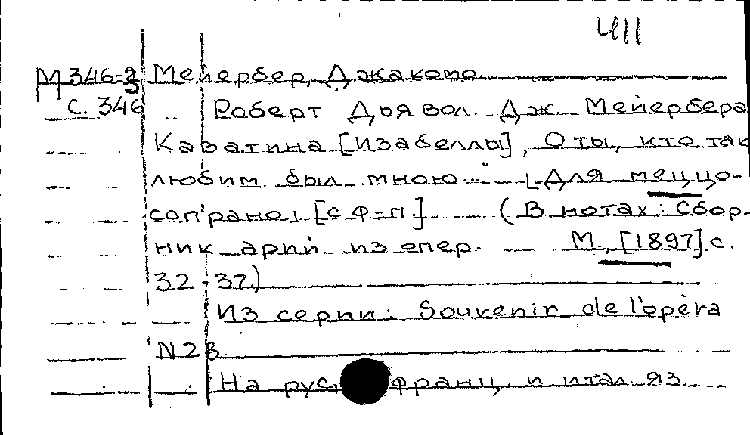 411
М 346-2 Мейербер, Джакомо
с. 346 Роберт Дьявол. Дж. Мейербера
Каватина [Изабеллы], О ты, кто так
любим был мною... [Для меццо-
сопрано] [с ф-п] (В нотах: Сбор-
ник арий из опер. М., [1897]. с.
32-37)
Из серии: Souvenir de l'opéra
N 23
На рус франц. и итал. яз.